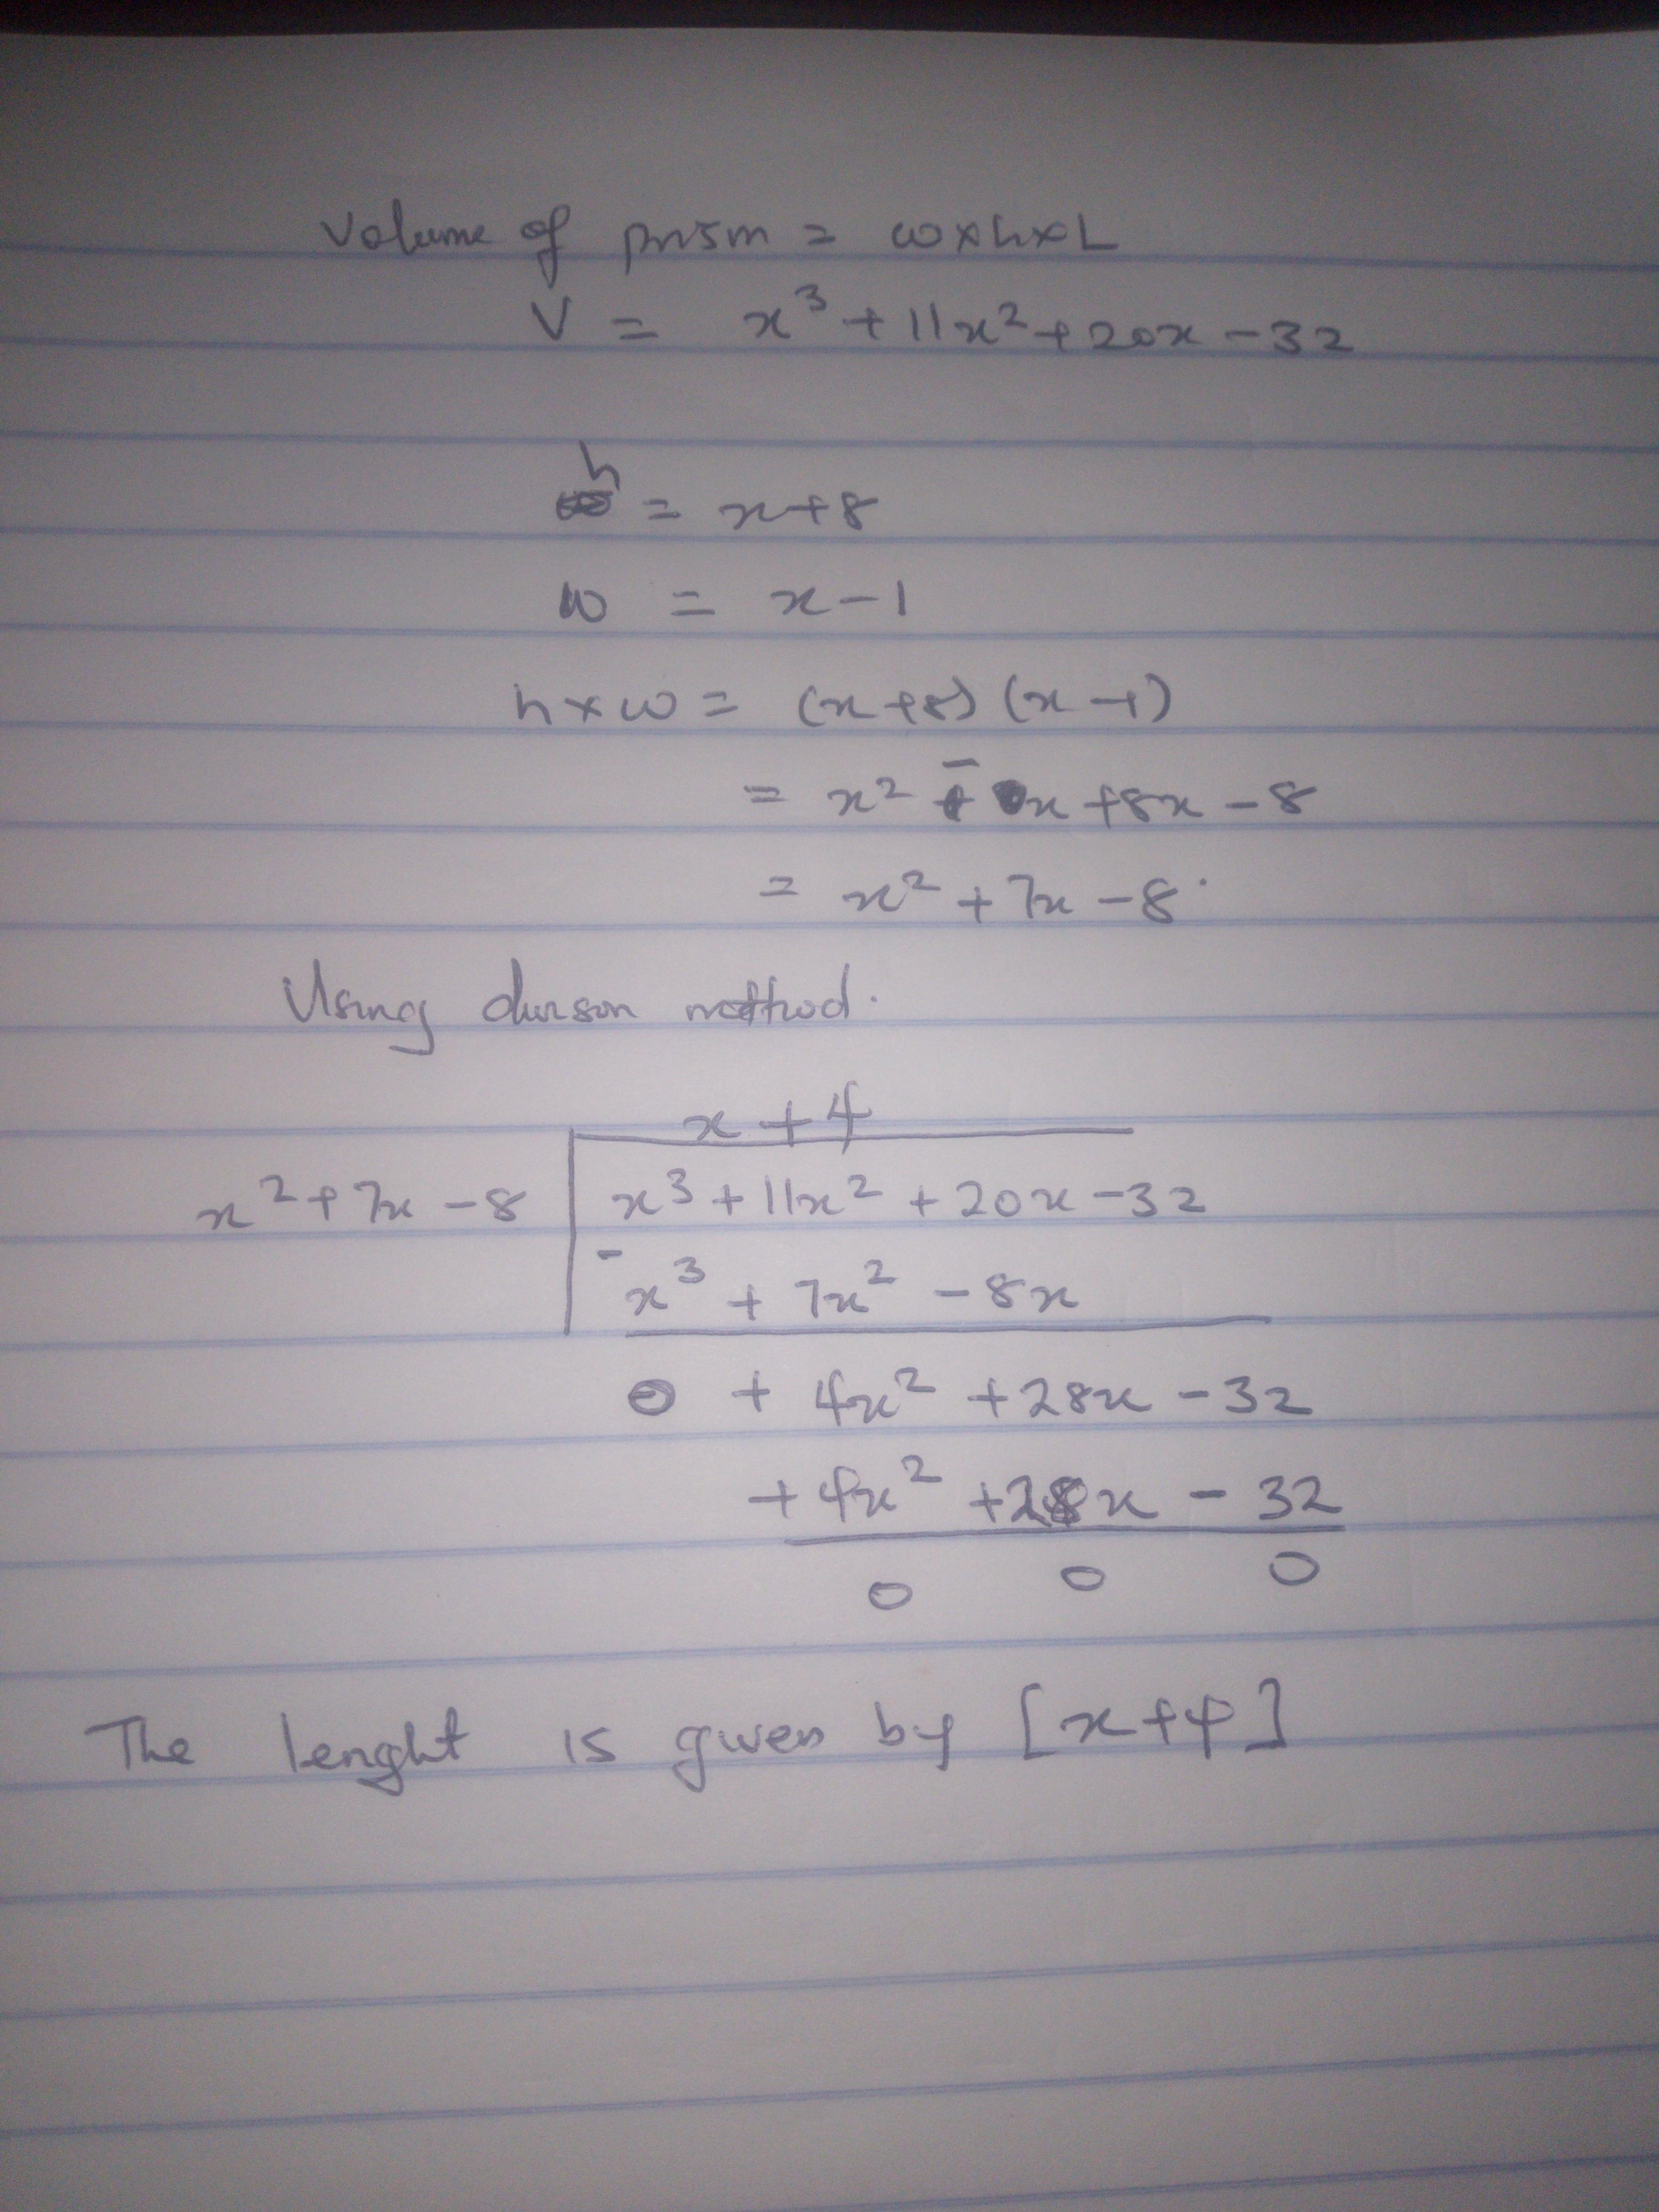 Volume of prism = w x h x L
V = x³ + 11x² + 20x - 32
h = x+8
w = x-1
h x w = (x+8) (x-1)
= x² - x + 8x - 8
= x² + 7x - 8.
Using divison method.
x + 4
x² + 7x - 8 x³ + 11x² + 20x - 32
- x³ + 7x² - 8x
0 + 4x² + 28x - 32
+ 4x² + 28x - 32
0 0 0
The lenght is given by [x+4]